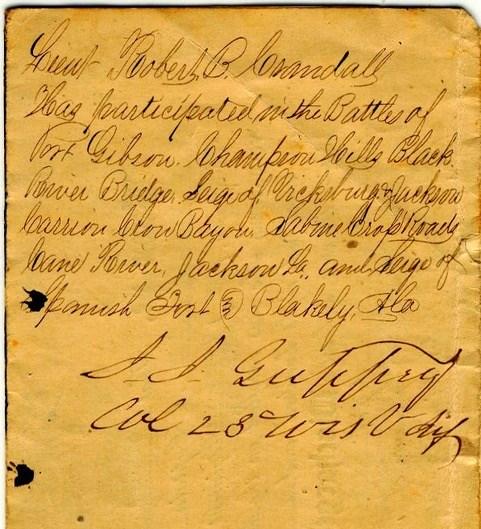 Lieut Robert B. Crandall
Has participated in the Battles of
Port Gibson. Champion Hills, Black
River Bridge, Seige of Vicksburg & Jackson
Carrion Crow Bayou. Sabine Cross Roads
Cane River, Jackson La. and Seige of
Spanish Fort & Blakely, Ala
J. J. Guppey
Col 23 Wis V Inf